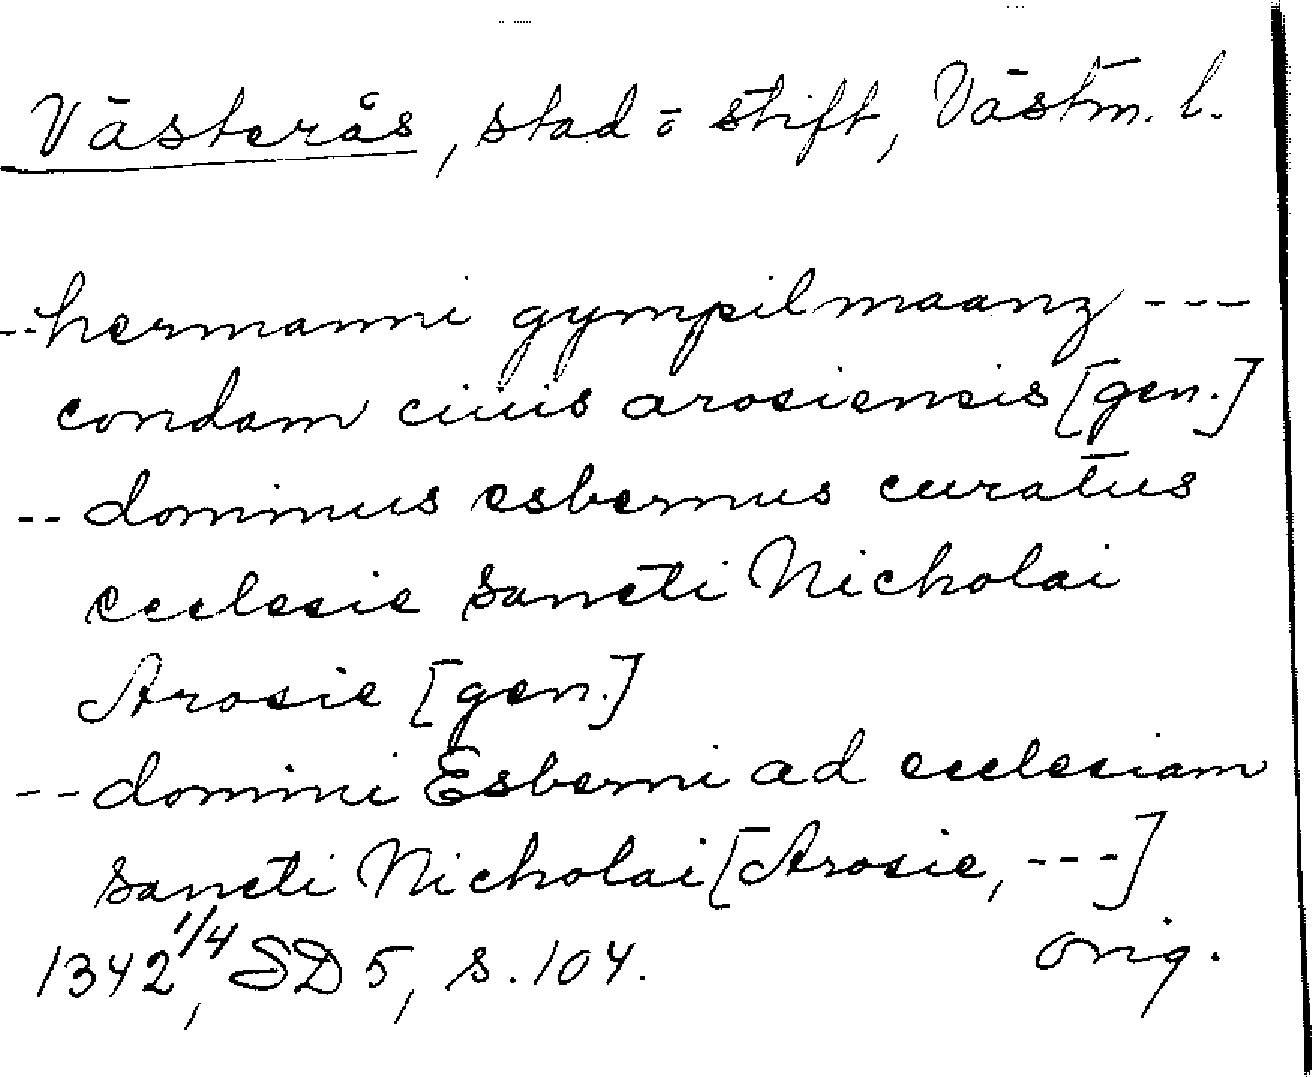 Västerås, stad o stift, Västm. l.
--hermanni gympilmaanz ---
condam ciuis arosiensis [gen.]
-- dominus esbernus curatus
ecclesie sancti Nicholai
Arosie [gen.]
-- domini Esberni ad ecclesiam
sancti Nicholai [Arosie, ---]
1342 1/4, SD 5, s. 104. orig.